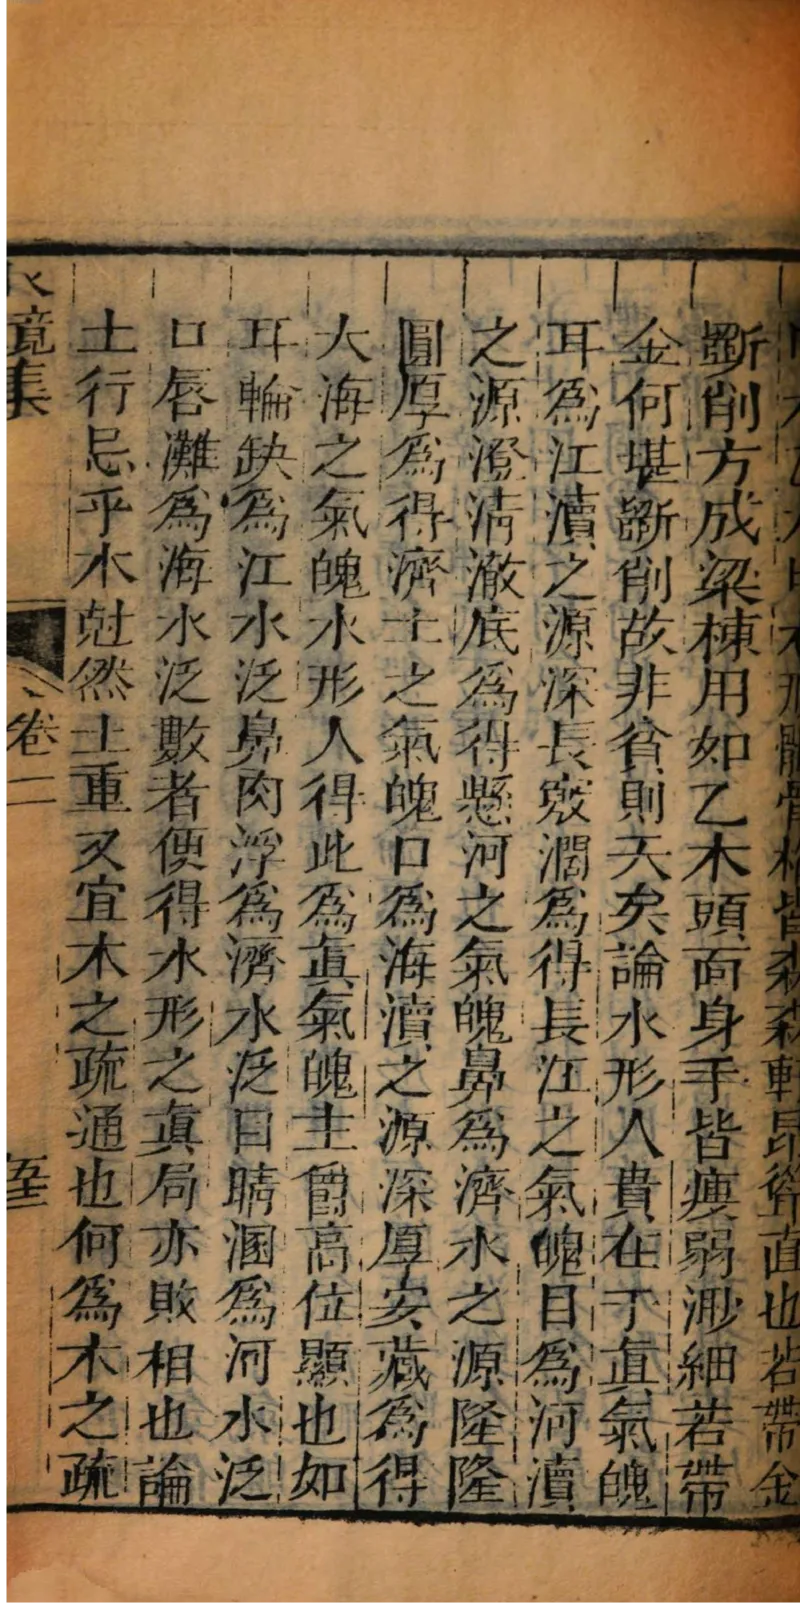 甲木乙木甲木形體骨格皆森森軒昂聳直也若帶金
斲削方成梁棟用如乙木頭面身手皆瘦弱渺細若帶
金何堪斲削故非貧則夭矣論水形人貴在于眞氣魄
耳爲江瀆之源深長竅濶爲得長江之氣魄目爲河瀆
之源澄清澈底爲得懸河之氣魄鼻爲濟水之源隆隆
圓厚爲得濟士之氣魄口爲海瀆之源深厚安藏爲得
大海之氣魄水形人得此爲眞氣魄主爵高位顯也如
耳輪缺爲江水泛鼻肉浮爲濟水泛目睛溷爲河水泛
口唇灘爲海水泛數者便得水形之眞局亦敗相也論
土行忌乎木尅然土重又宜木之疏通也何爲木之疏
水鏡集
卷二